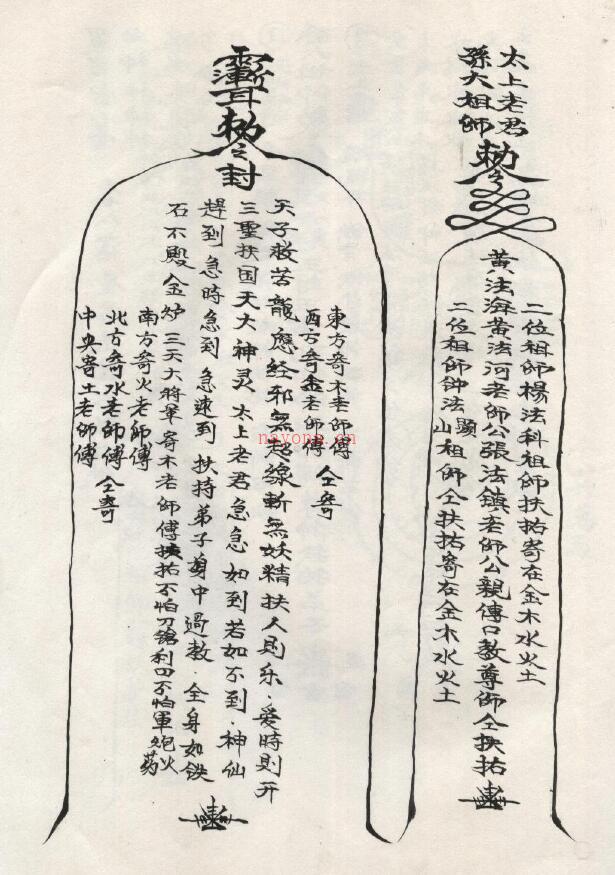 太上老君
孫大祖師
勅令
二位祖師楊法科祖師扶祐寄在金木水火土
黃法海黃法河老師公張法鎮老師公親傳口教尊師仝扶祐
二位祖師钟法顯山祖師仝扶祐寄在金木水火土
勅令封
東方寄木老師傅
西方寄金老師傅 仝寄
天子救苦龍應経邪無起線斬無妖精扶人則乐·爱時則开
三聖扶国天大神灵 太上老君急急如到若如不到·神仙
趕到急時急到急速到 扶持弟子身中過教·全身如铁
石不毁金炉 三天大將軍寄木老師傅扶祐不怕刀鎗利四不怕軍炮火药
南方寄火老師傅
北方寄水老師傅 仝寄
中央寄土老師傅
nayona.cn